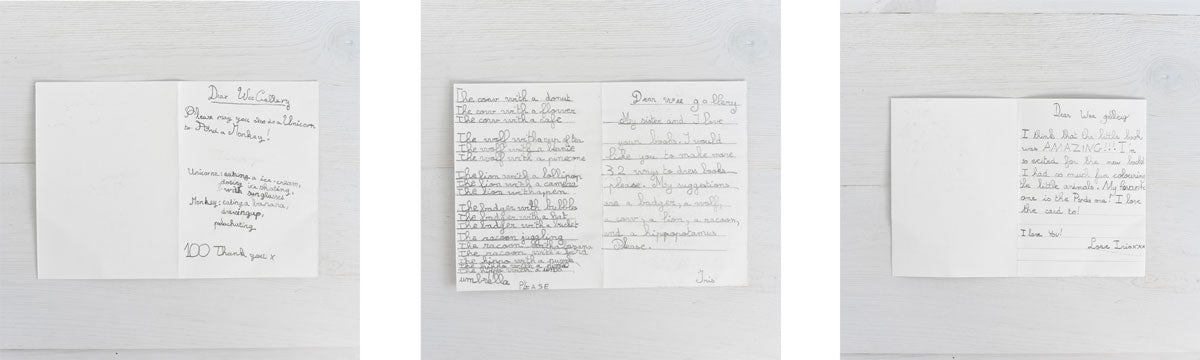 Dear Wee Gallery
Please may you also do a Unicorn
and a Monkey!
Unicorn: eating a ice-cream,
ice skating,
with sunglasses
Monkey: eating a banana,
parachuting
100 Thank you x
The cow with a donut
The cow with a flower
The cow with a cafe
The wolf with a cup of tea
The wolf with a
The wolf with a pinecone
The lion with a lollipop
The lion with a camera
The lion with a pen
The badger with bubble
The badger with a hat
The badger with a bucket
The racoon juggling
The racoon with a banana
The racoon with a
The hippo with a
The hippo with a
The hippo with a
umbrella
PLEASE
Dear wee gallery
My sister and I love
your books. I would
like you to make more
32 ways to dress books
please. My suggestions
are a badger, a wolf,
a cow, a lion, a racoon,
and a hippopotamus
Please.
Iris
Dear Wee gallery
I think that the little book
was AMAZING!!! I'm
so exited for the new books
I had so much fun colouring
the little animals. My favorite
one is the Panda one! I love
the card to!
I love You!
Love Iris xxx